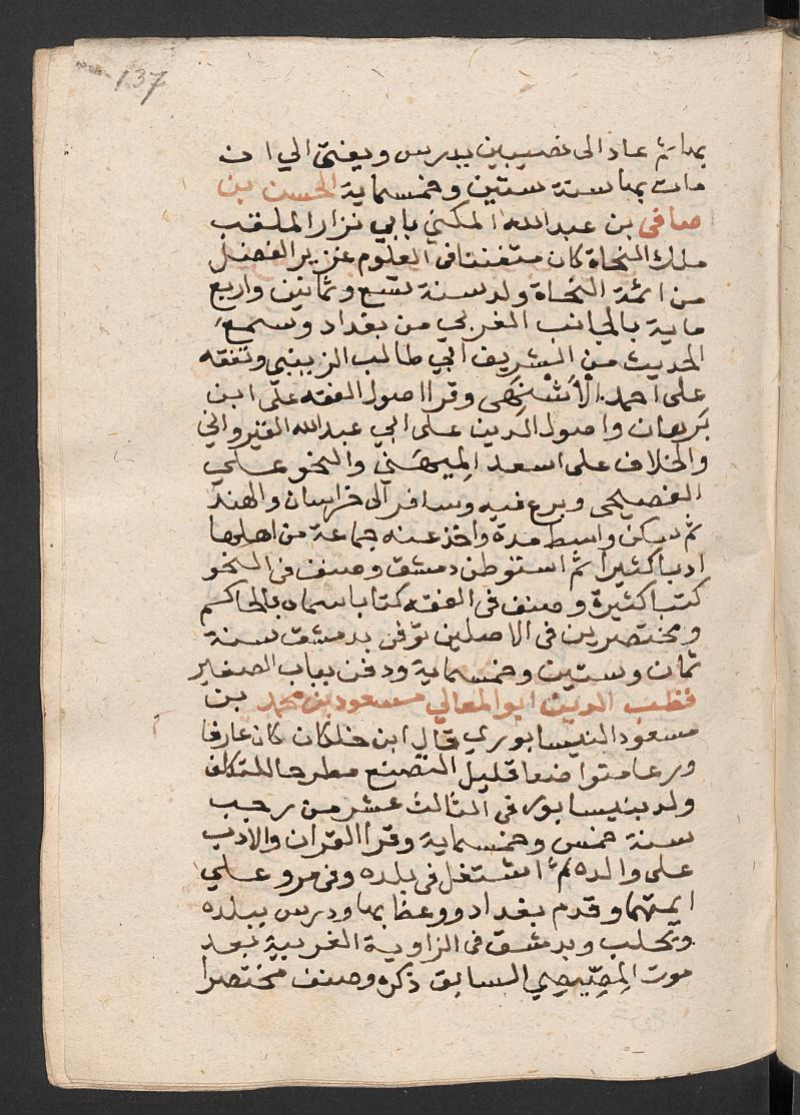 137
بها ثم عاد الى نصيبين يدرس ويفتي الي ان
مات بها سنة ستين وخمسماية الحسن بن
صافي بن عبد الله المكني بابي نزار الملقب
ملك النحاة كان متفننا في العلوم عزيز الفضل
من ائمة النحاة ولد سنة تسع وثمانين واربع
ماية بالجانب الغربي من بغداد وسمع
الحديث من الشريف ابي طالب الزينبي وتفقه
على احمد الأشنهى وقرا اصول الفقه على ابن
بَرهان واصول الدين على ابي عبد الله القيرواني
والخلاف على اسعد المِيهَني والنحو على
الفصيحي وبرع فيه وسافر الى خراسان والهند
ثم سكن واسط مدة واخذ عنه جماعة من اهلها
ادبا كثيرا ثم استوطن دمشق وصنف في النحو
كتبا كثيرة وصنف في الفقه كتابا سماه بالحاكم
ومختصرين في الاصلين توفى بدمشق سنة
ثمان وستين وخمسماية ودفن بباب الصغير
قطب الدين ابو المعالي مسعود بن محمد بن
مسعود النيسابوري قال ابن خلكان كان عارفا
ورعا متواضعا قليل التصنع مطرحا للتكلف
ولد بنيسابور في الثالث عشر من رجب
سنة خمس وخمسماية وقرا القران والادب
على والده ثم اشتغل في بلده وفي مرو على
ايمتهما وقدم بغداد ووعظ بها ودرس ببلده
وبحلب وبدمشق في الزاوية الغربية بعد
موت المِصِّيصِي السابق ذكره وصنف مختصرا